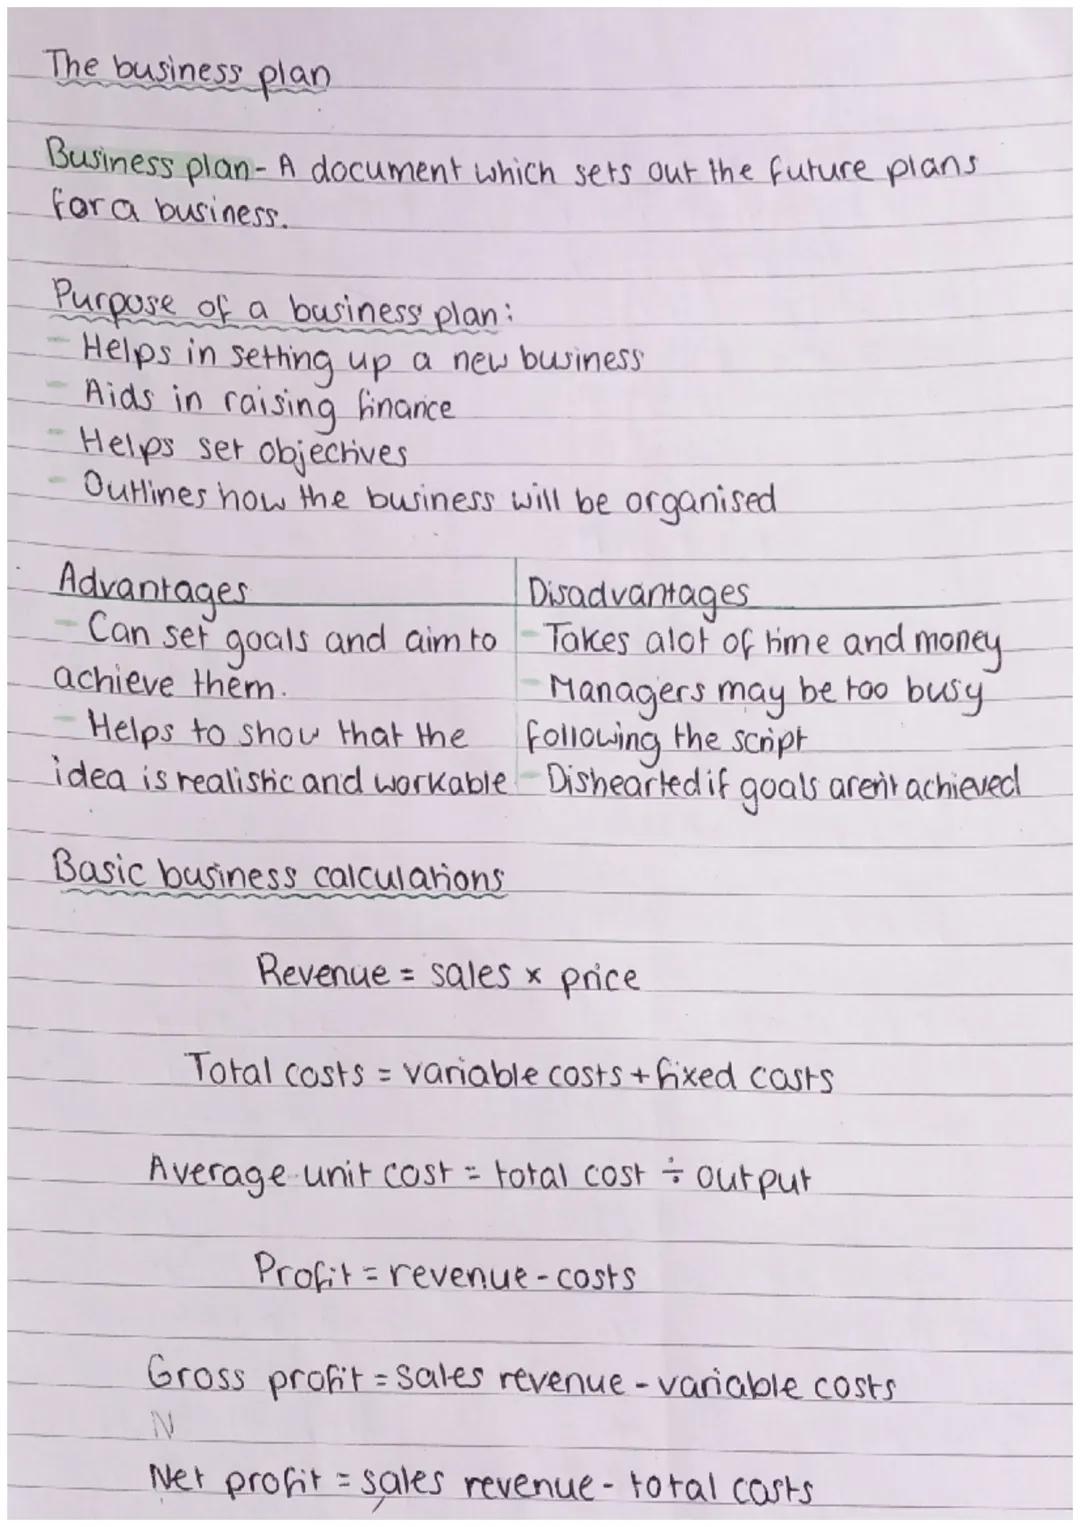 The business plan
Business plan- A document which sets out the future plans
for a business.
Purpose of a business plan:
- Helps in setting up a new business
- Aids in raising finance
- Helps set objectives
- Outlines how the business will be organised
Advantages
- Can set goals and aim to
achieve them.
- Helps to show that the
idea is realistic and workable
Disadvantages
- Takes alot of time and money
- Managers may be too busy
following the script
- Dishearted if goals aren't achieved
Basic business calculations
Revenue = sales x price
Total costs = variable costs + fixed costs
Average unit cost = total cost ÷ output
Profit = revenue - costs
Gross profit = sales revenue - variable costs
N
Net profit = sales revenue - total costs